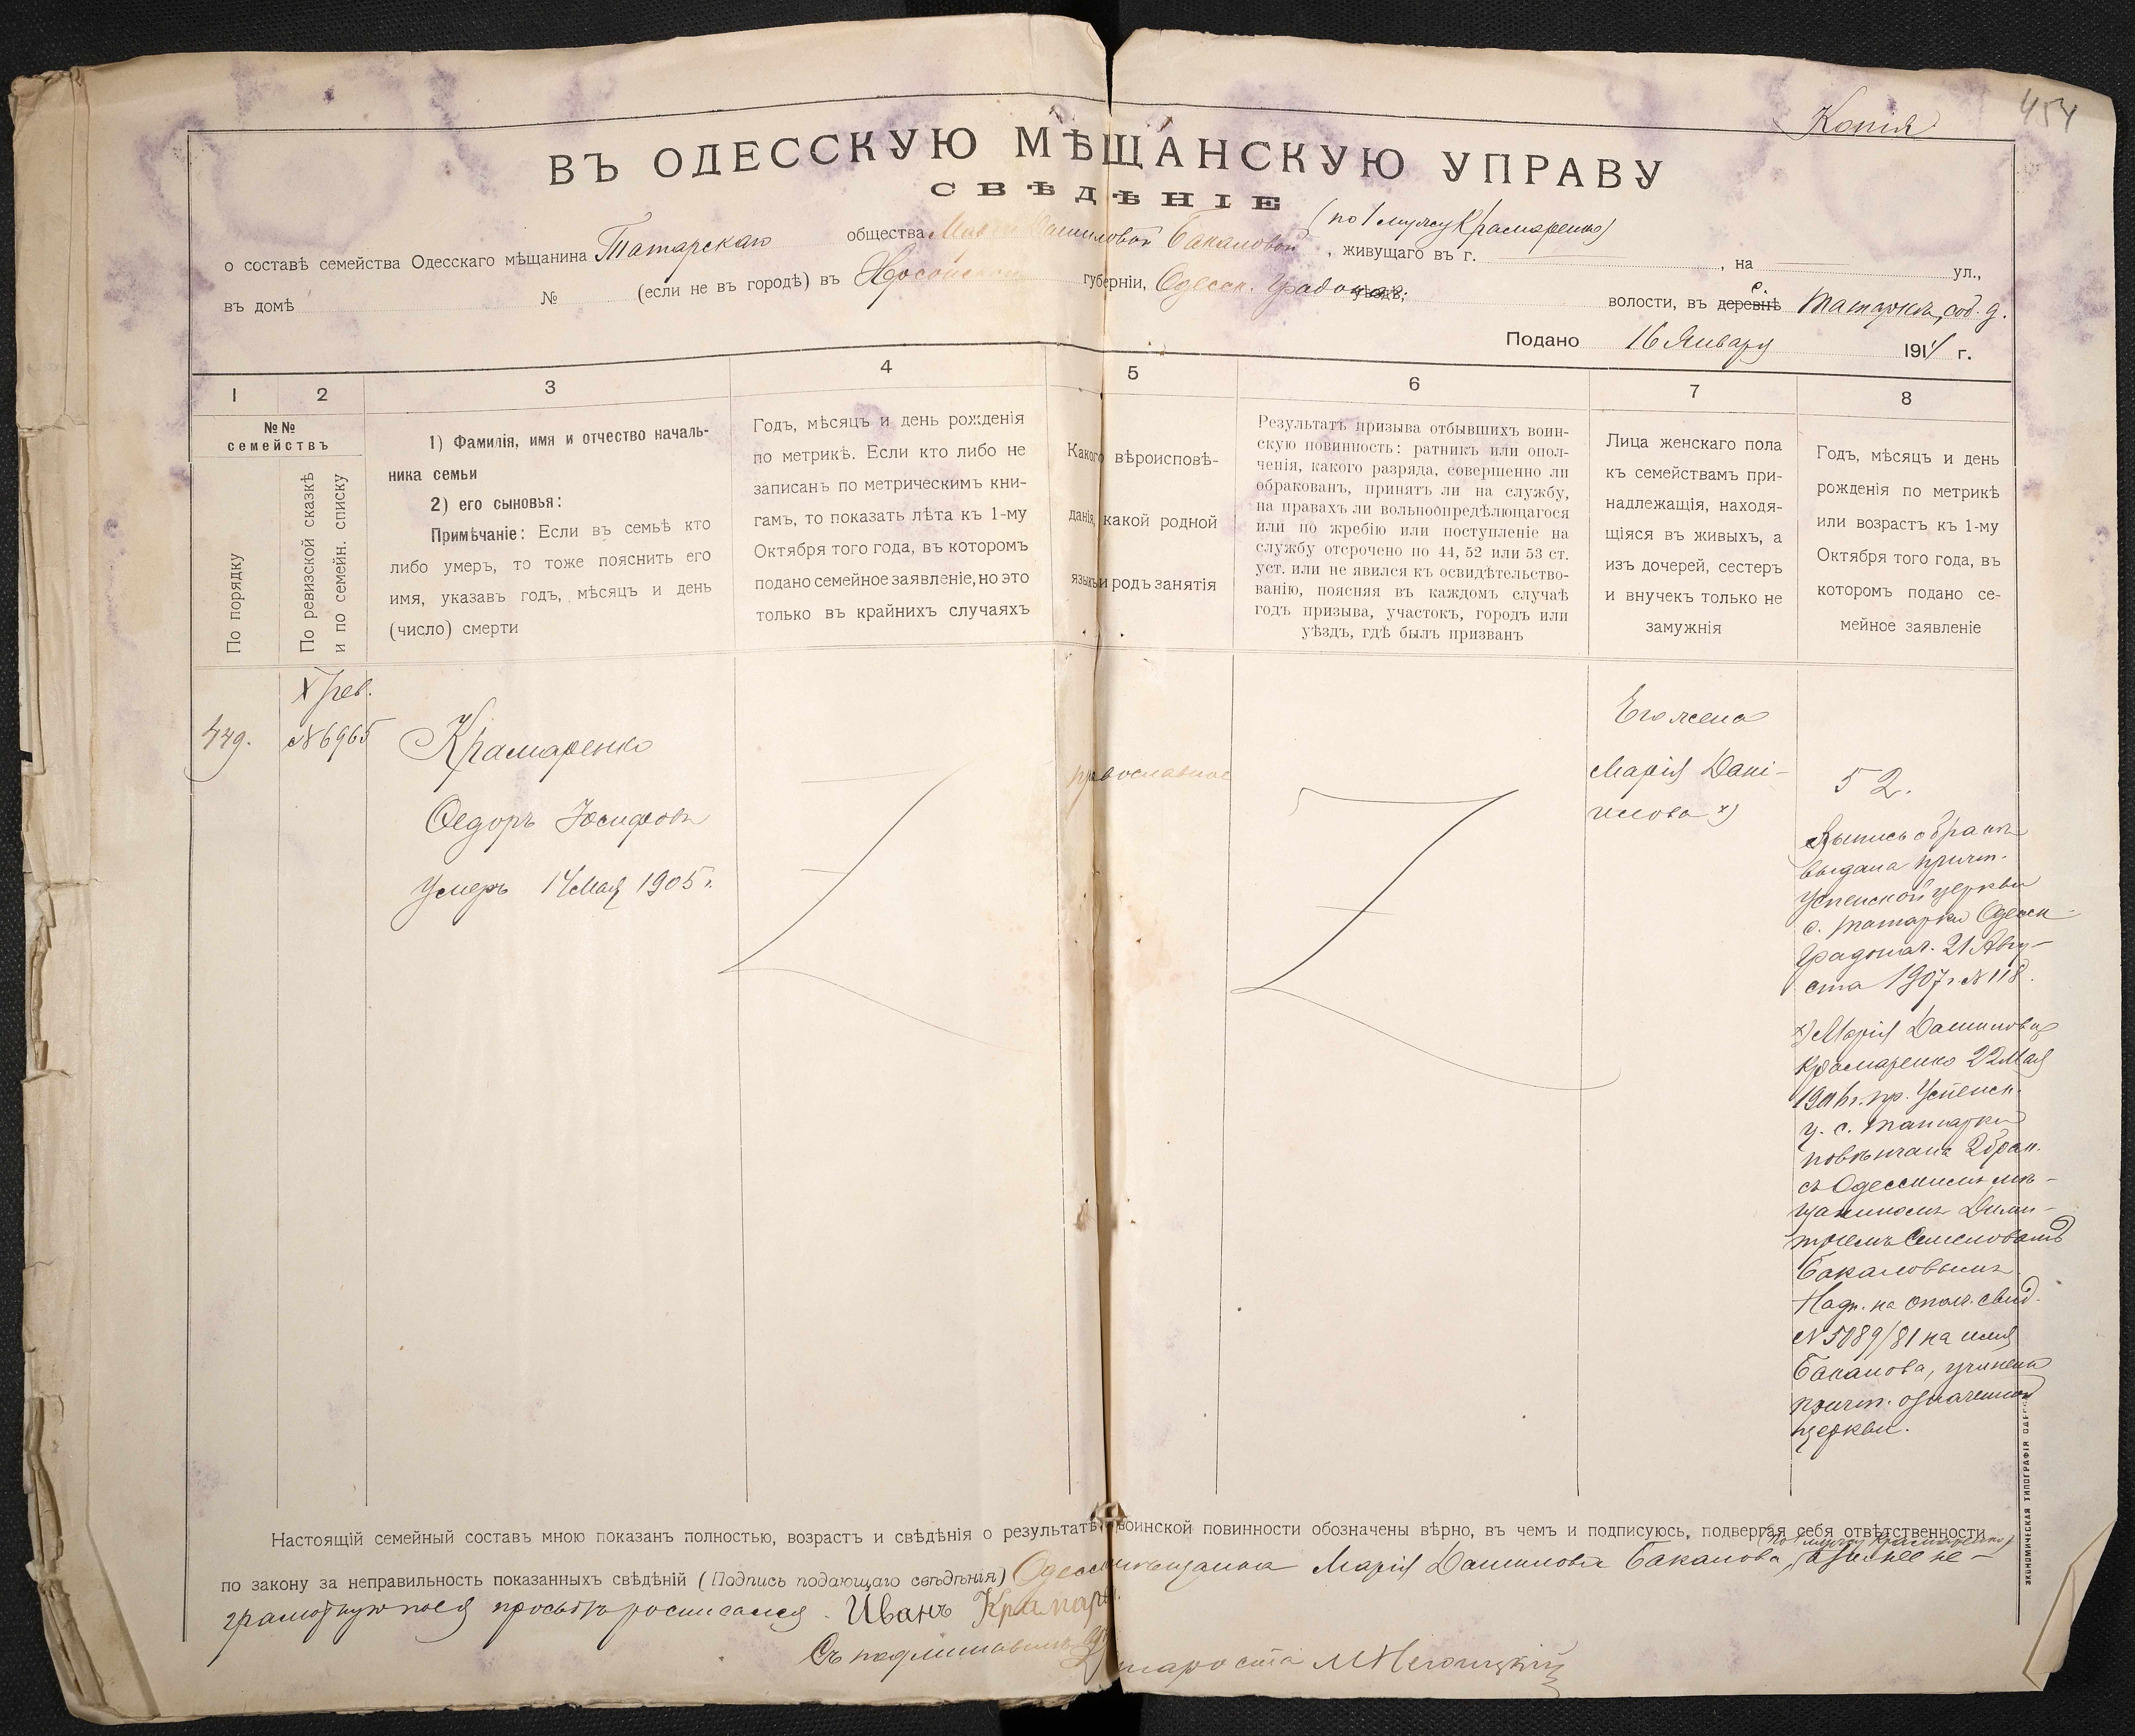 454
Копія
ВЪ ОДЕССКУЮ МѢЩАНСКУЮ УПРАВУ
СВѢДѢНІЕ
(по 1 мужу Крамаренко)
о составѣ семейства Одесскаго мѣщанина Татарскаго общества Маріи Даниловой Бакаловой, живущаго въ г. , на ул.,
въ домѣ № (если не въ городѣ) въ Херсонской губерніи, Одесск. Градонач. уѣздѣ, волости, въ деревнѣ с. Татаркѣ, соб. д.
Подано 16 Января 1914 г.
1 2 3 4 5 6 7 8
№№ семействъ
По порядку
По ревизской сказкѣ
и по семейн. списку
1) Фамилія, имя и отчество началь-
ника семьи
2) его сыновья:
Примѣчаніе: Если въ семьѣ кто
либо умеръ, то тоже пояснить его
имя, указавъ годъ, мѣсяцъ и день
(число) смерти
Годъ, мѣсяцъ и день рожденія
по метрикѣ. Если кто либо не
записанъ по метрическимъ кни-
гамъ, то показать лѣта къ 1-му
Октября того года, въ которомъ
подано семейное заявленіе, но это
только въ крайнихъ случаяхъ
Какого вѣроисповѣ-
данія, какой родной
языкъ и родъ занятія
Результатъ призыва отбывшихъ воин-
скую повинность: ратникъ или опол-
ченія, какого разряда, совершенно ли
обракованъ, принятъ ли на службу,
на правахъ ли вольноопредѣляющагося
или по жребію или поступленіе на
службу отсрочено по 44, 52 или 53 ст.
уст. или не явился къ освидѣтельство-
ванію, поясняя въ каждомъ случаѣ
годъ призыва, участокъ, городъ или
уѣздъ, гдѣ былъ призванъ
Лица женскаго пола
къ семействамъ при-
надлежащія, находя-
щіяся въ живыхъ, а
изъ дочерей, сестеръ
и внучекъ только не
замужнія
Годъ, мѣсяцъ и день
рожденія по метрикѣ
или возрастъ къ 1-му
Октября того года, въ
которомъ подано се-
мейное заявленіе
449.
X рев.
№ 6965
Крамаренко
Ѳедоръ Іосифовъ
умеръ 14 Мая 1905 г.
православное
Его жена
Марія Дани-
илова х)
52.
Выпись о бракѣ
выдана причт.
Успенской церкви
с. Татарки Одесск.
Градонач. 21 Авгу-
ста 1907 г. № 118.
х) Марія Данилова
Крамаренко 22 Мая
190 г. пр. Успенск.
ц. с. Татарки
повѣнчана 2 брак.
съ Одесскимъ мѣ-
щаниномъ Дими-
тріемъ
Бакаловымъ.
Надп. на опол. свид.
№ 5089/81 на имя
Бакалова, учинена
причт. означенной
церкви.
Настоящій семейный составъ мною показанъ полностью, возрастъ и свѣдѣнія о результатѣ воинской повинности обозначены вѣрно, въ чемъ и подписуюсь, подвергая себя отвѣтственности
(по 1 мужу Крамаренко)
по закону за неправильность показанныхъ свѣдѣній (Подпись подающаго свѣдѣнія) Одесская мѣщанка Марія Данилова Бакалова, а за нее не-
грамотную по ея просьбѣ росписался. Иванъ Крамаре
Съ подлиннымъ вѣрно
Староста
ЭКОНОМИЧЕСКАЯ ТИПОГРАФІЯ ОДЕССА